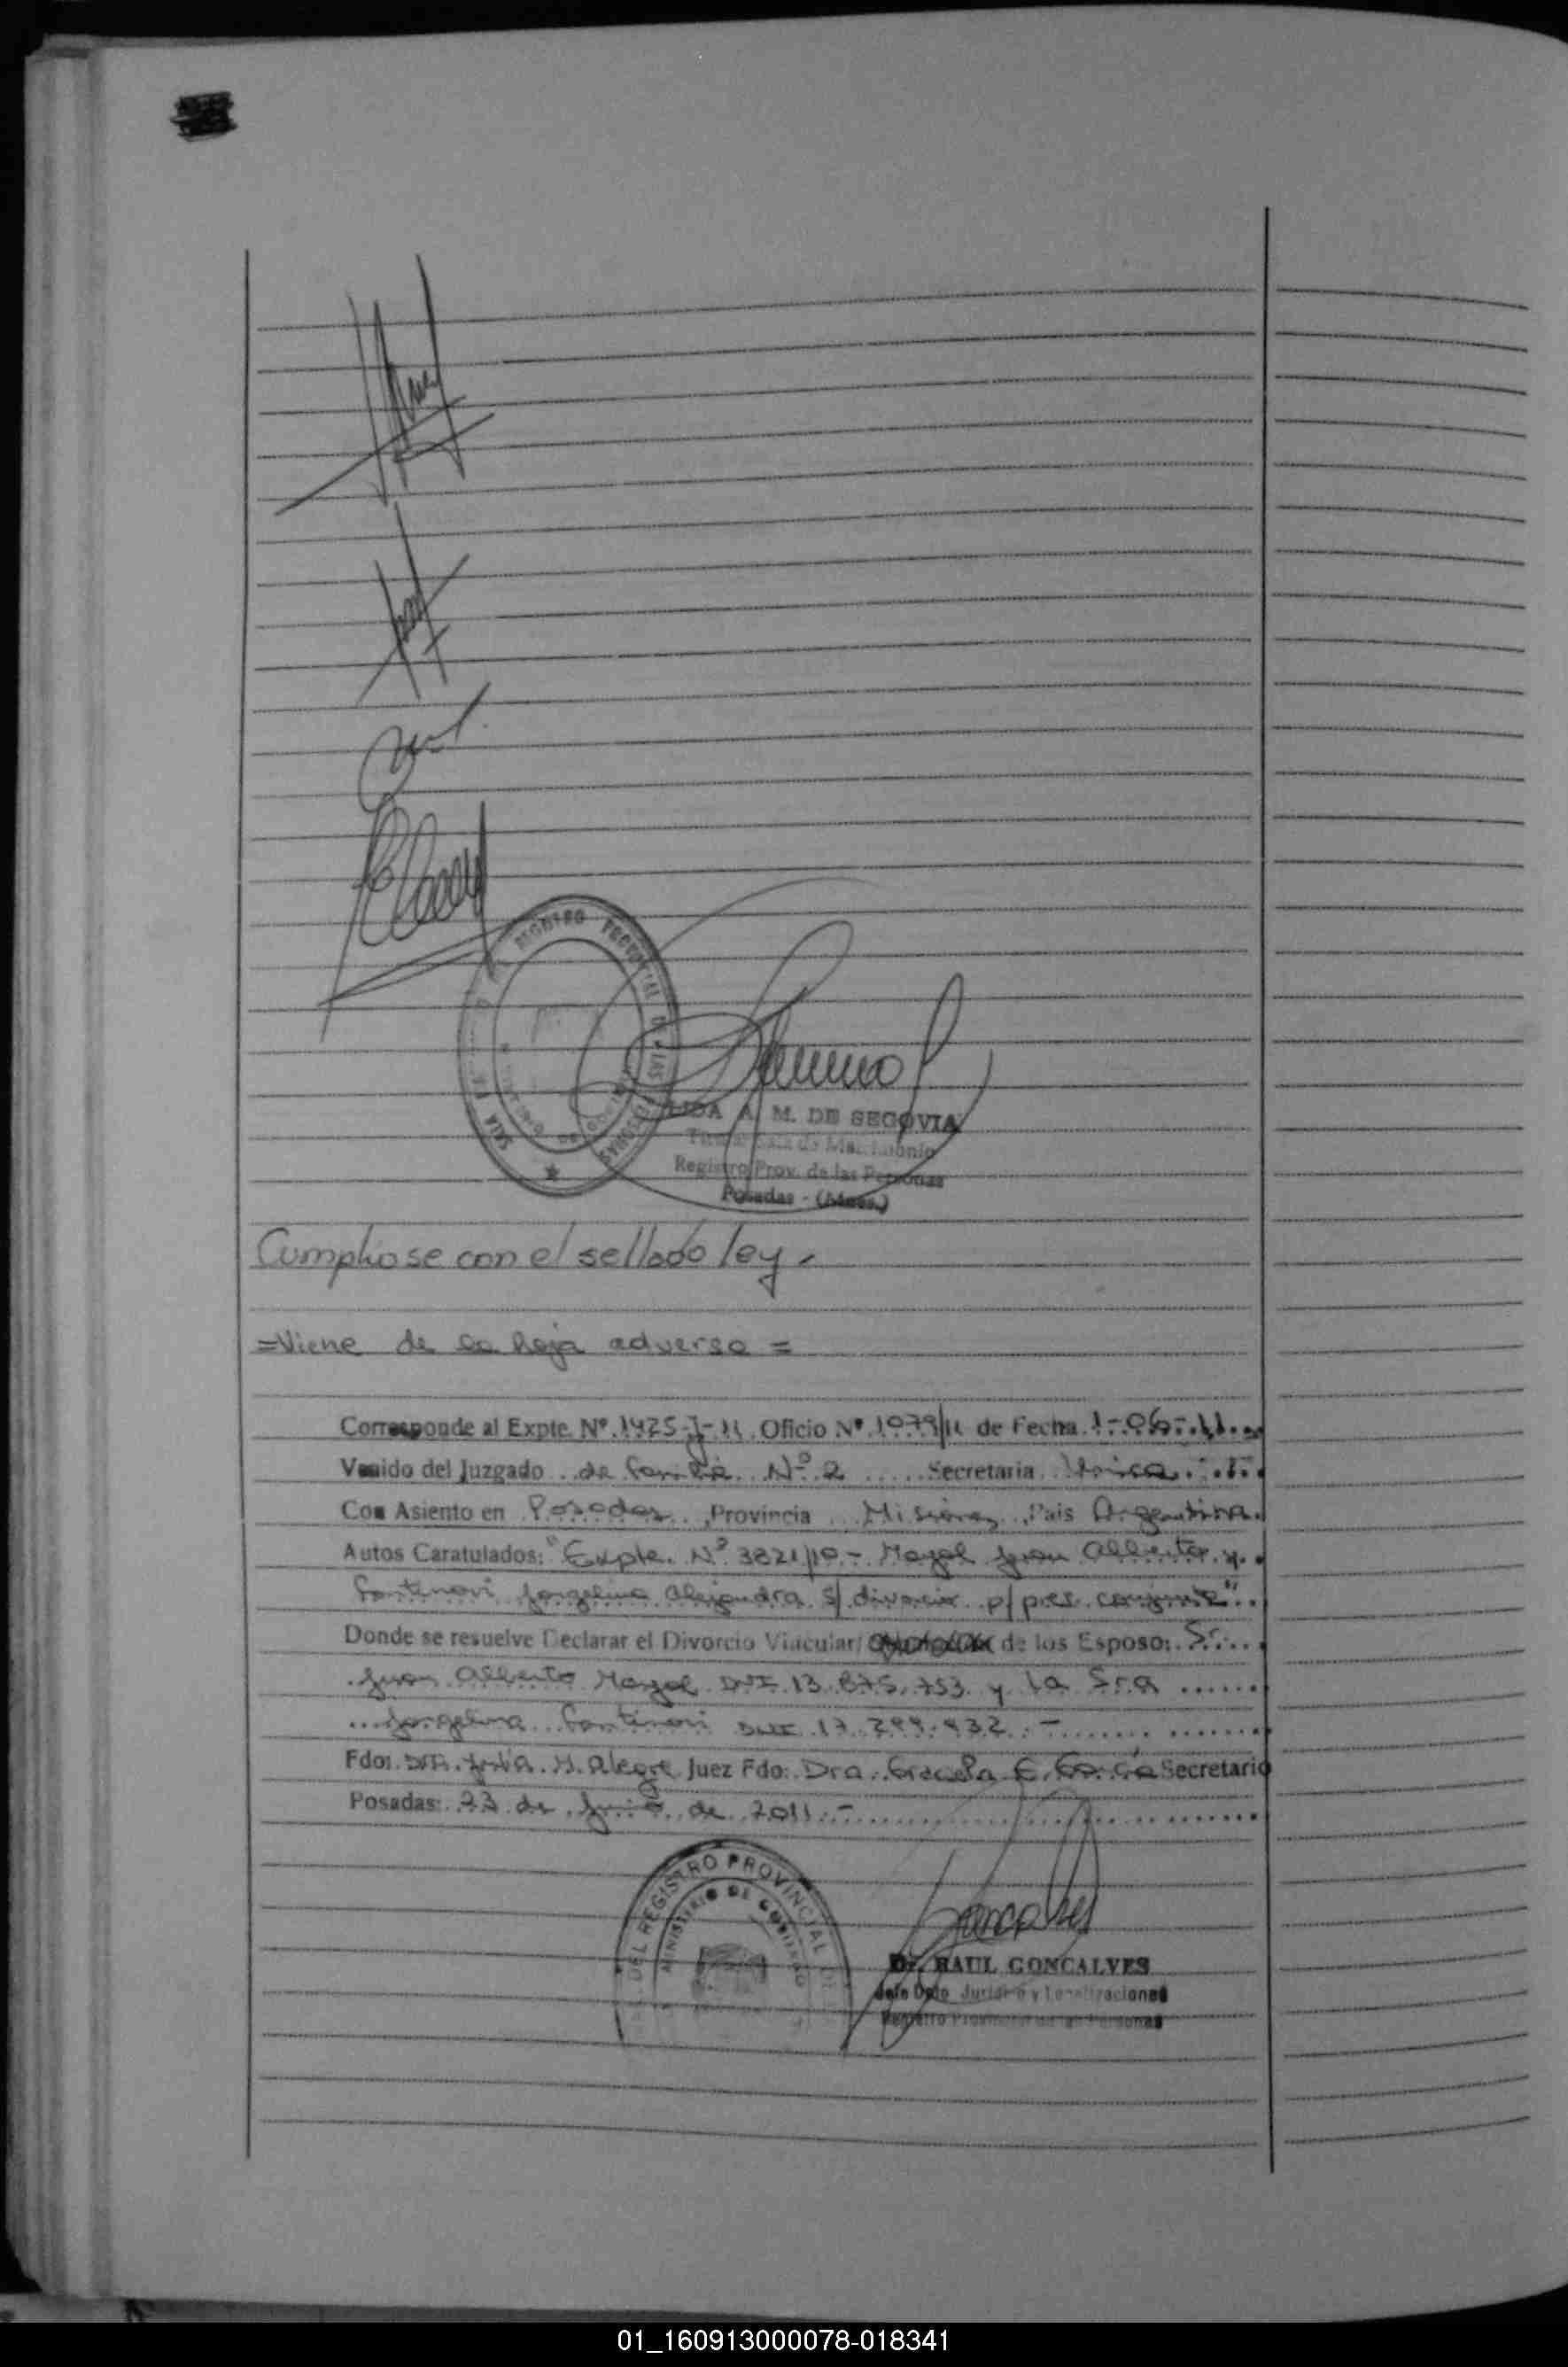 REGISTRO PROVINCIAL DE LAS PERSONAS
SALA
LIDA A. M. DE SEGOVIA
Titular Sala de Matrimonio
Registro Prov. de las Personas
Posadas - (Mnes.)
Cumpliose con el sellado ley.
=Viene de la hoja adversa=
Corresponde al Expte. Nº 1425-J-11 Oficio Nº 1079/11 de Fecha 1-06-11
Venido del Juzgado de Familia Nº 2 Secretaria Unica
Con Asiento en Posadas, Provincia Misiones, Pais Argentina
Autos Caratulados: "Expte. Nº 3821/10 - Mayol Juan Alberto y
Fontenovi Jorgelina Alejandra s/ divorcio p/ pres. conjunta"
Donde se resuelve Declarar el Divorcio Vincular/ de los Esposo: Sr.
Juan Alberto Mayol DNI 13.875.753 y La Sra
Jorgelina DNI 17.299.432.-
Fdo: Dra. Julia M. Alegre Juez Fdo: Dra. Graciela E. García Secretario
Posadas: 23 de Junio de 2011.-
DEL REGISTRO PROVINCIAL DE
MINISTERIO DE GOBIERNO
Dr. RAUL GONCALVES
Jefe Dpto. Juridico y Legalizaciones
Registro Provincial de las Personas
01_160913000078-018341